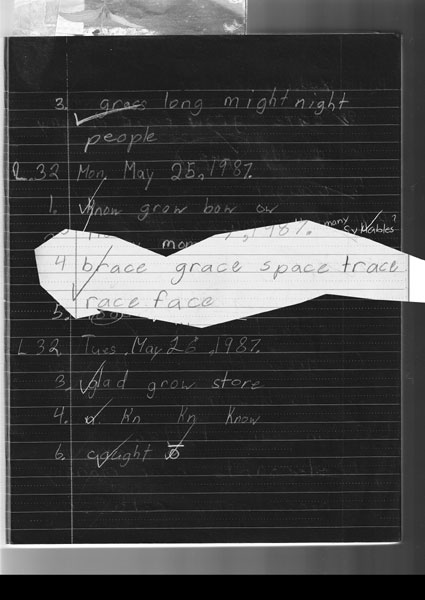 3. grows long might night
people
L.32 Mon, May 25, 1987.
1. Know grow bow ow
many
Syllables?
4 brace grace space trace
race face
5.
L 32 Tues, May 26, 1987.
3. glad grow store
4. Kn Kn Know
6. caught